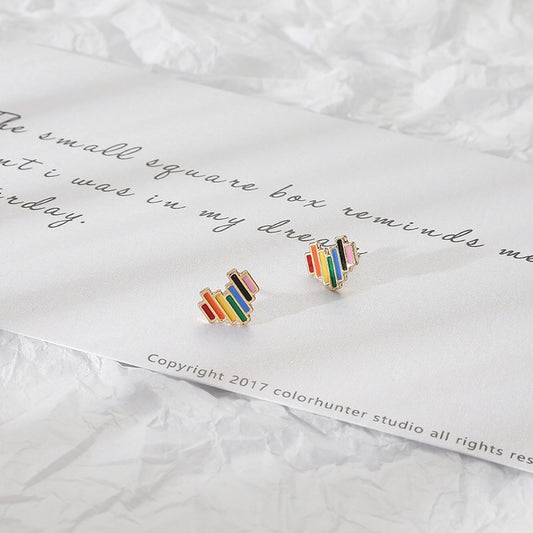 The small square box reminds me
but i was in my dream
yesterday.
Copyright 2017 colorhunter studio all rights res